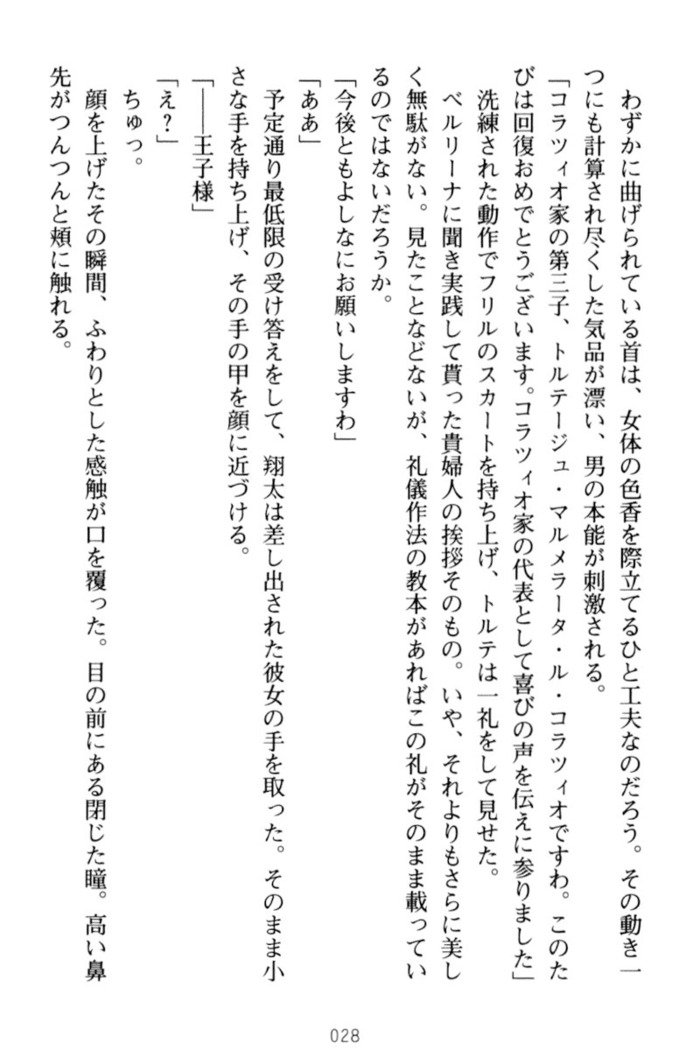 わずかに曲げられている首は、女体の色香を際立てるひと工夫なのだろう。その動き一
つにも計算され尽くした気品が漂い、男の本能が刺激される。
「コラツィオ家の第三子、トルテージュ・マルメラータ・ル・コラツィオですわ。このた
びは回復おめでとうございます。コラツィオ家の代表として喜びの声を伝えに参りました」
洗練された動作でフリルのスカートを持ち上げ、トルテは一礼をして見せた。
ベルリーナに聞き実践して貰った貴婦人の挨拶そのもの。いや、それよりもさらに美し
く無駄がない。見たことなどないが、礼儀作法の教本があればこの礼がそのまま載ってい
るのではないだろうか。
「今後ともよしなにお願いしますわ」
「ああ」
予定通り最低限の受け答えをして、翔太は差し出された彼女の手を取った。そのまま小
さな手を持ち上げ、その手の甲を顔に近づける。
「――王子様」
「え？」
ちゅっ。
顔を上げたその瞬間、ふわりとした感触が口を覆った。目の前にある閉じた瞳。高い鼻
先がつんつんと頬に触れる。
028